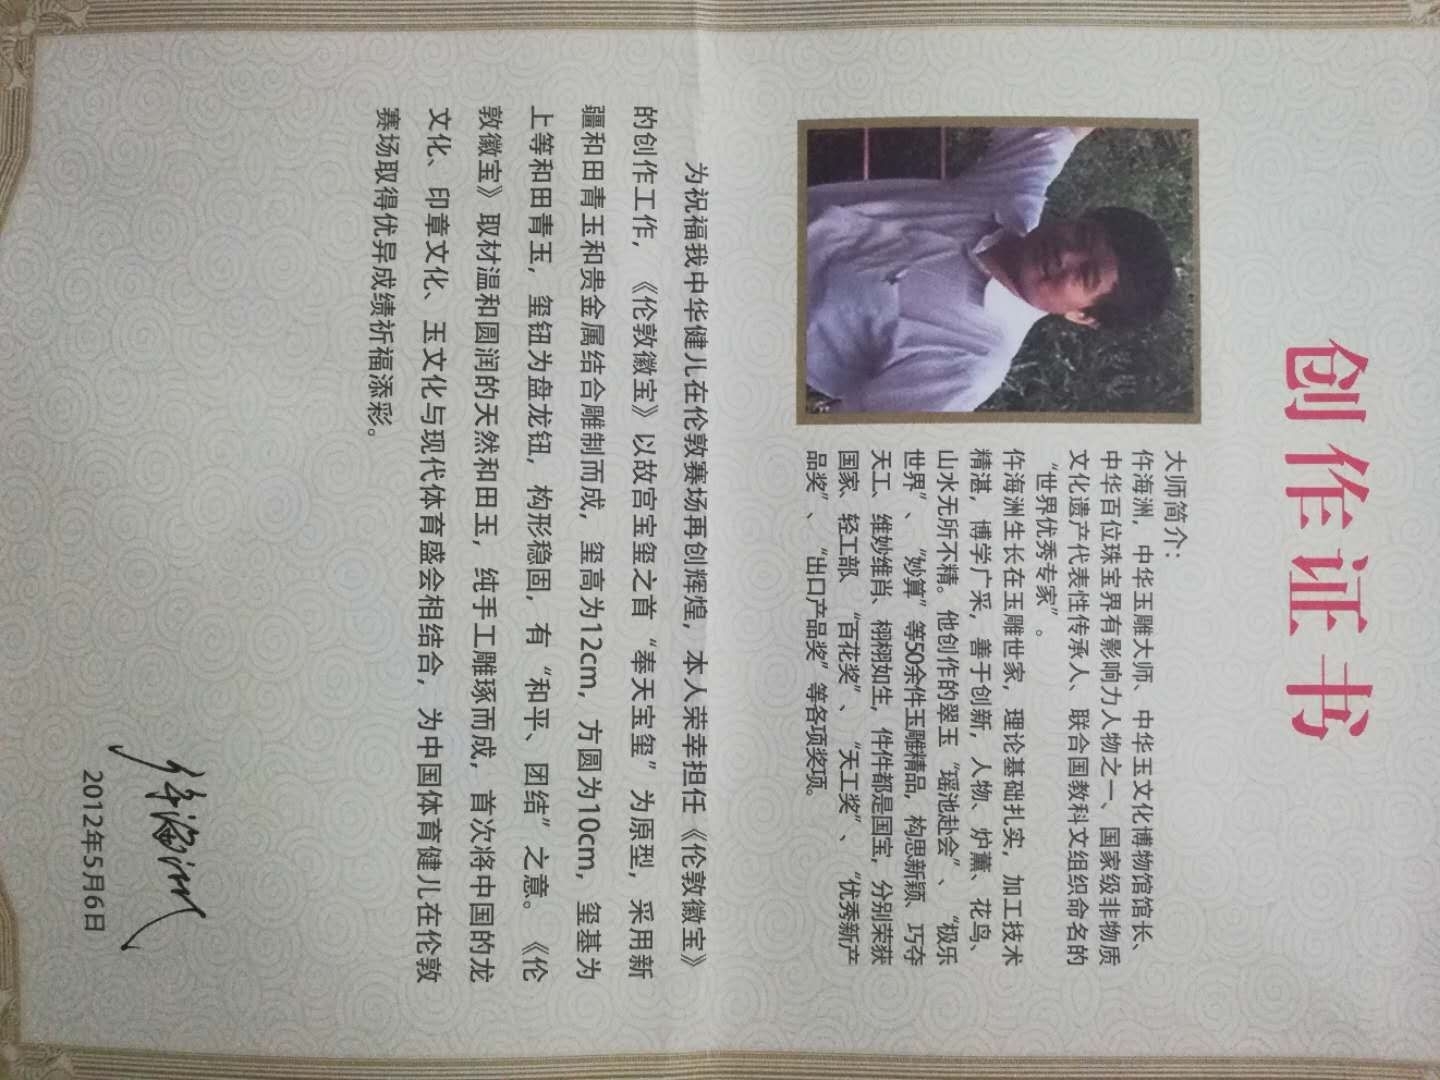 创作证书
大师简介：
仵海洲，中华玉雕大师、中华玉文化博物馆馆长、
中华百位珠宝界有影响力人物之一、国家级非物质
文化遗产代表性传承人、联合国教科文组织命名的
“世界优秀专家”。
仵海洲生长在玉雕世家，理论基础扎实，加工技术
精湛，博学广采，善于创新，人物、炉薰、花鸟、
山水无所不精。他创作的翠玉“瑶池赴会”、“极乐
世界”、“妙算”等50余件玉雕精品，构思新颖、巧夺
天工、维妙维肖、栩栩如生，件件都是国宝，分别荣获
国家、轻工部 “百花奖”、“天工奖”、“优秀新产
品奖”、“出口产品奖”等各项奖项。
为祝福我中华健儿在伦敦赛场再创辉煌，本人荣幸担任《伦敦徽宝》
的创作工作，《伦敦徽宝》以故宫宝玺之首“奉天宝玺”为原型，采用新
疆和田青玉和贵金属结合雕制而成，玺高为12cm，方圆为10cm，玺基为
上等和田青玉，玺钮为盘龙钮，构形稳固，有“和平、团结”之意。《伦
敦徽宝》取材温和圆润的天然和田玉，纯手工雕琢而成，首次将中国的龙
文化、印章文化、玉文化与现代体育盛会相结合，为中国体育健儿在伦敦
赛场取得优异成绩祈福添彩。
仵海洲
2012年5月6日